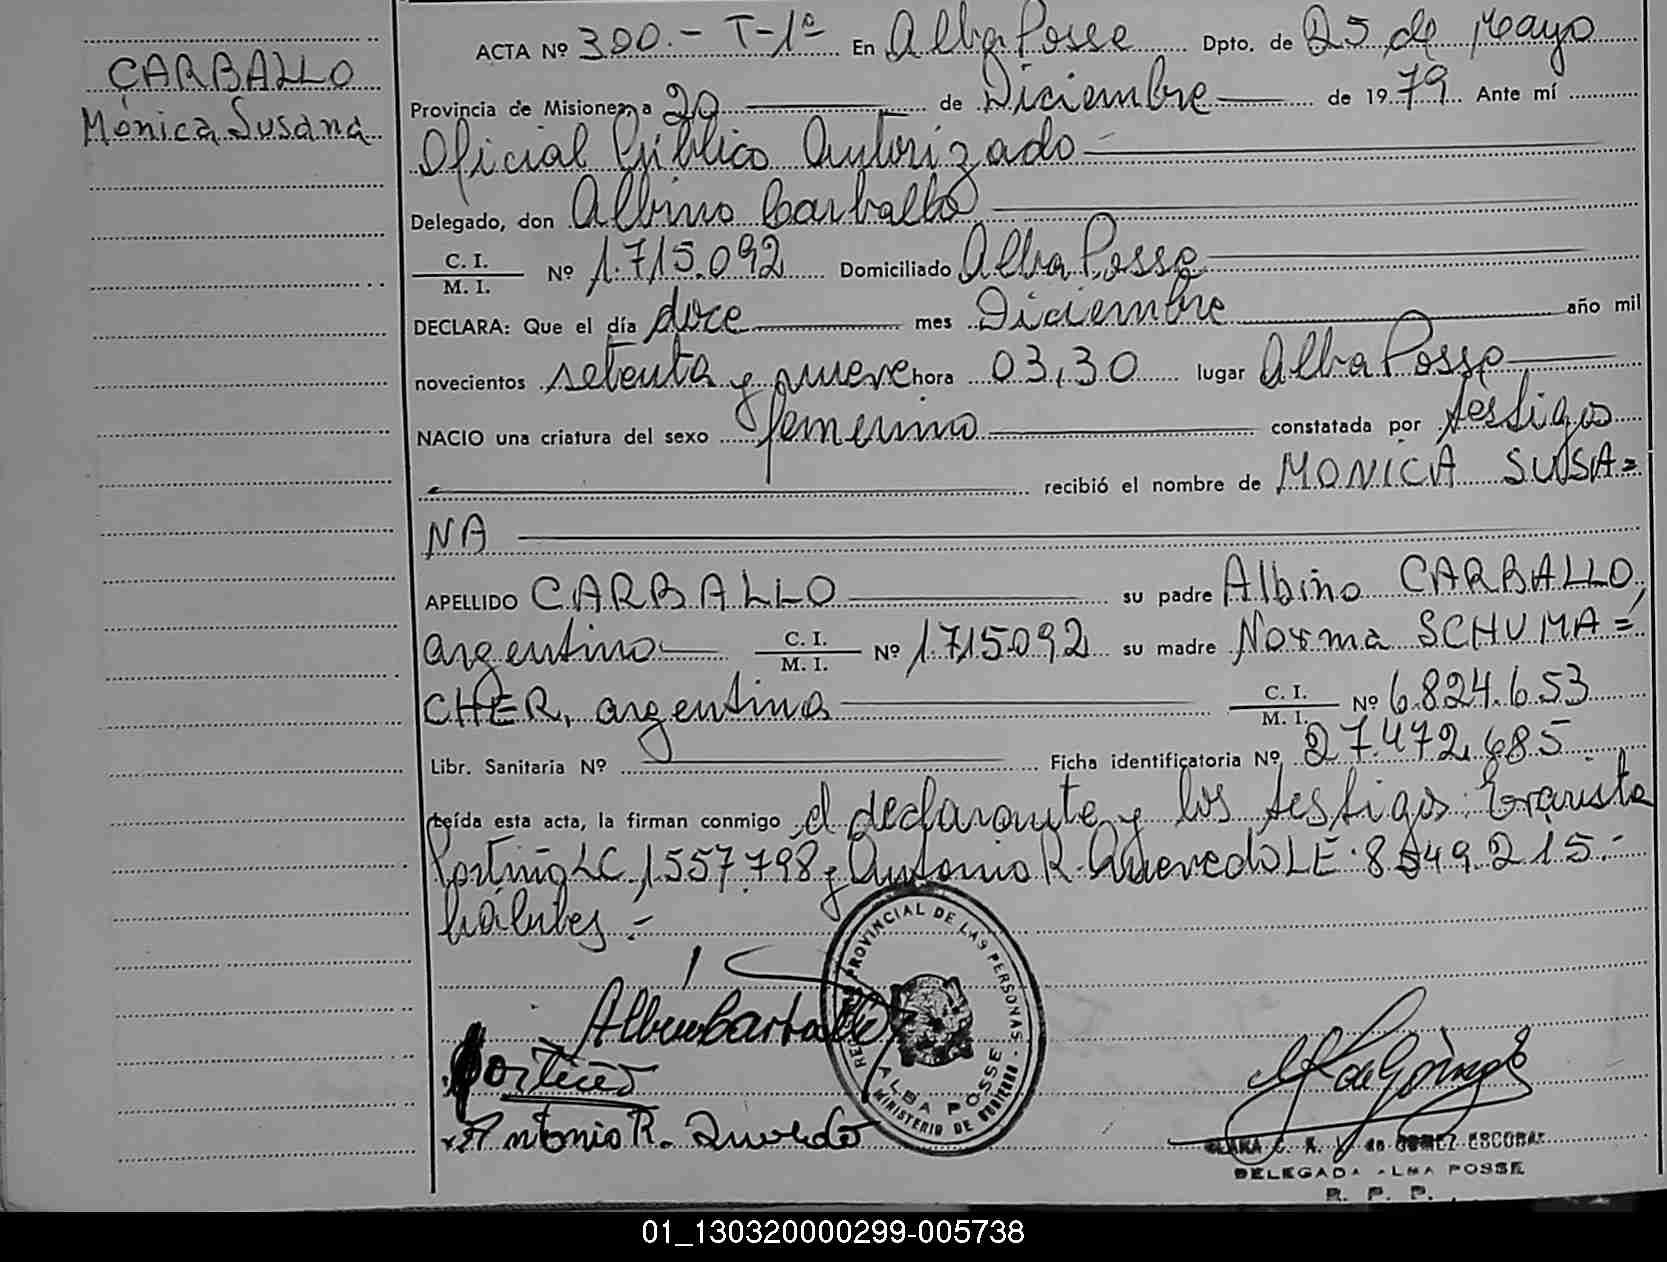 CARBALLO
Mónica Susana
ACTA Nº 300.- T-1º En Alba Posse Dpto. de 25 de Mayo
Provincia de Misiones, a 20 de Diciembre de 1979 Ante mí
Oficial Público Autorizado
Delegado, don Albino Carballo
C. I. / M. I. Nº 1.715.092 Domiciliado Alba Posse
DECLARA: Que el día doce mes Diciembre año mil
novecientos setenta y nueve hora 03,30 lugar Alba Posse
NACIO una criatura del sexo femenino constatada por testigos
recibió el nombre de MONICA SUSA=
NA
APELLIDO CARBALLO su padre Albino CARBALLO,
argentino C. I. / M. I. Nº 1.715.092 su madre Norma SCHUMA=
CHER, argentina C. I. / M. I. Nº 6.824.653
Libr. Sanitaria Nº Ficha identificatoria Nº 27.472.685
Leída esta acta, la firman conmigo el declarante y los testigos: Evarista
Portiño LC 1557.798 y Antonio R. Quevedo LE. 8.549.215.-
hábiles.-
Albino Carballo
Portiño
Antonio R. Quevedo
REGISTRO PROVINCIAL DE LAS PERSONAS
ALBA POSSE
MINISTERIO DE GOBIERNO
de GOMEZ ESCOBAR
DELEGADA ALBA POSSE
R. P. P.
01_130320000299-005738